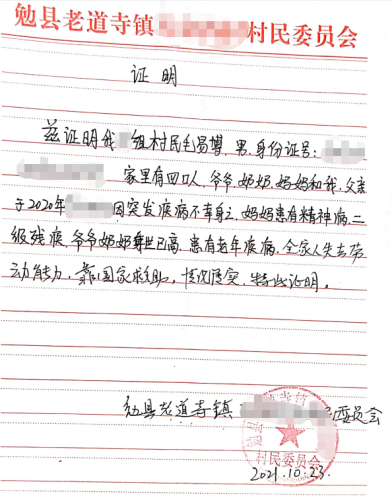 勉县老道寺镇 村民委员会
证明
兹证明我 组村民毛易增、男、身份证号:
家里有四口人,爷爷、奶奶、妈妈和我,父亲
于2020年 因突发疾病不幸身亡,妈妈患有精神病,二
级残疾,爷爷奶奶 已高,患有老年疾病,全家人失去劳
动能力,靠国家救助,情况属实,特此证明。
勉县老道寺镇 委员会
村民委员会
2021.10.23.